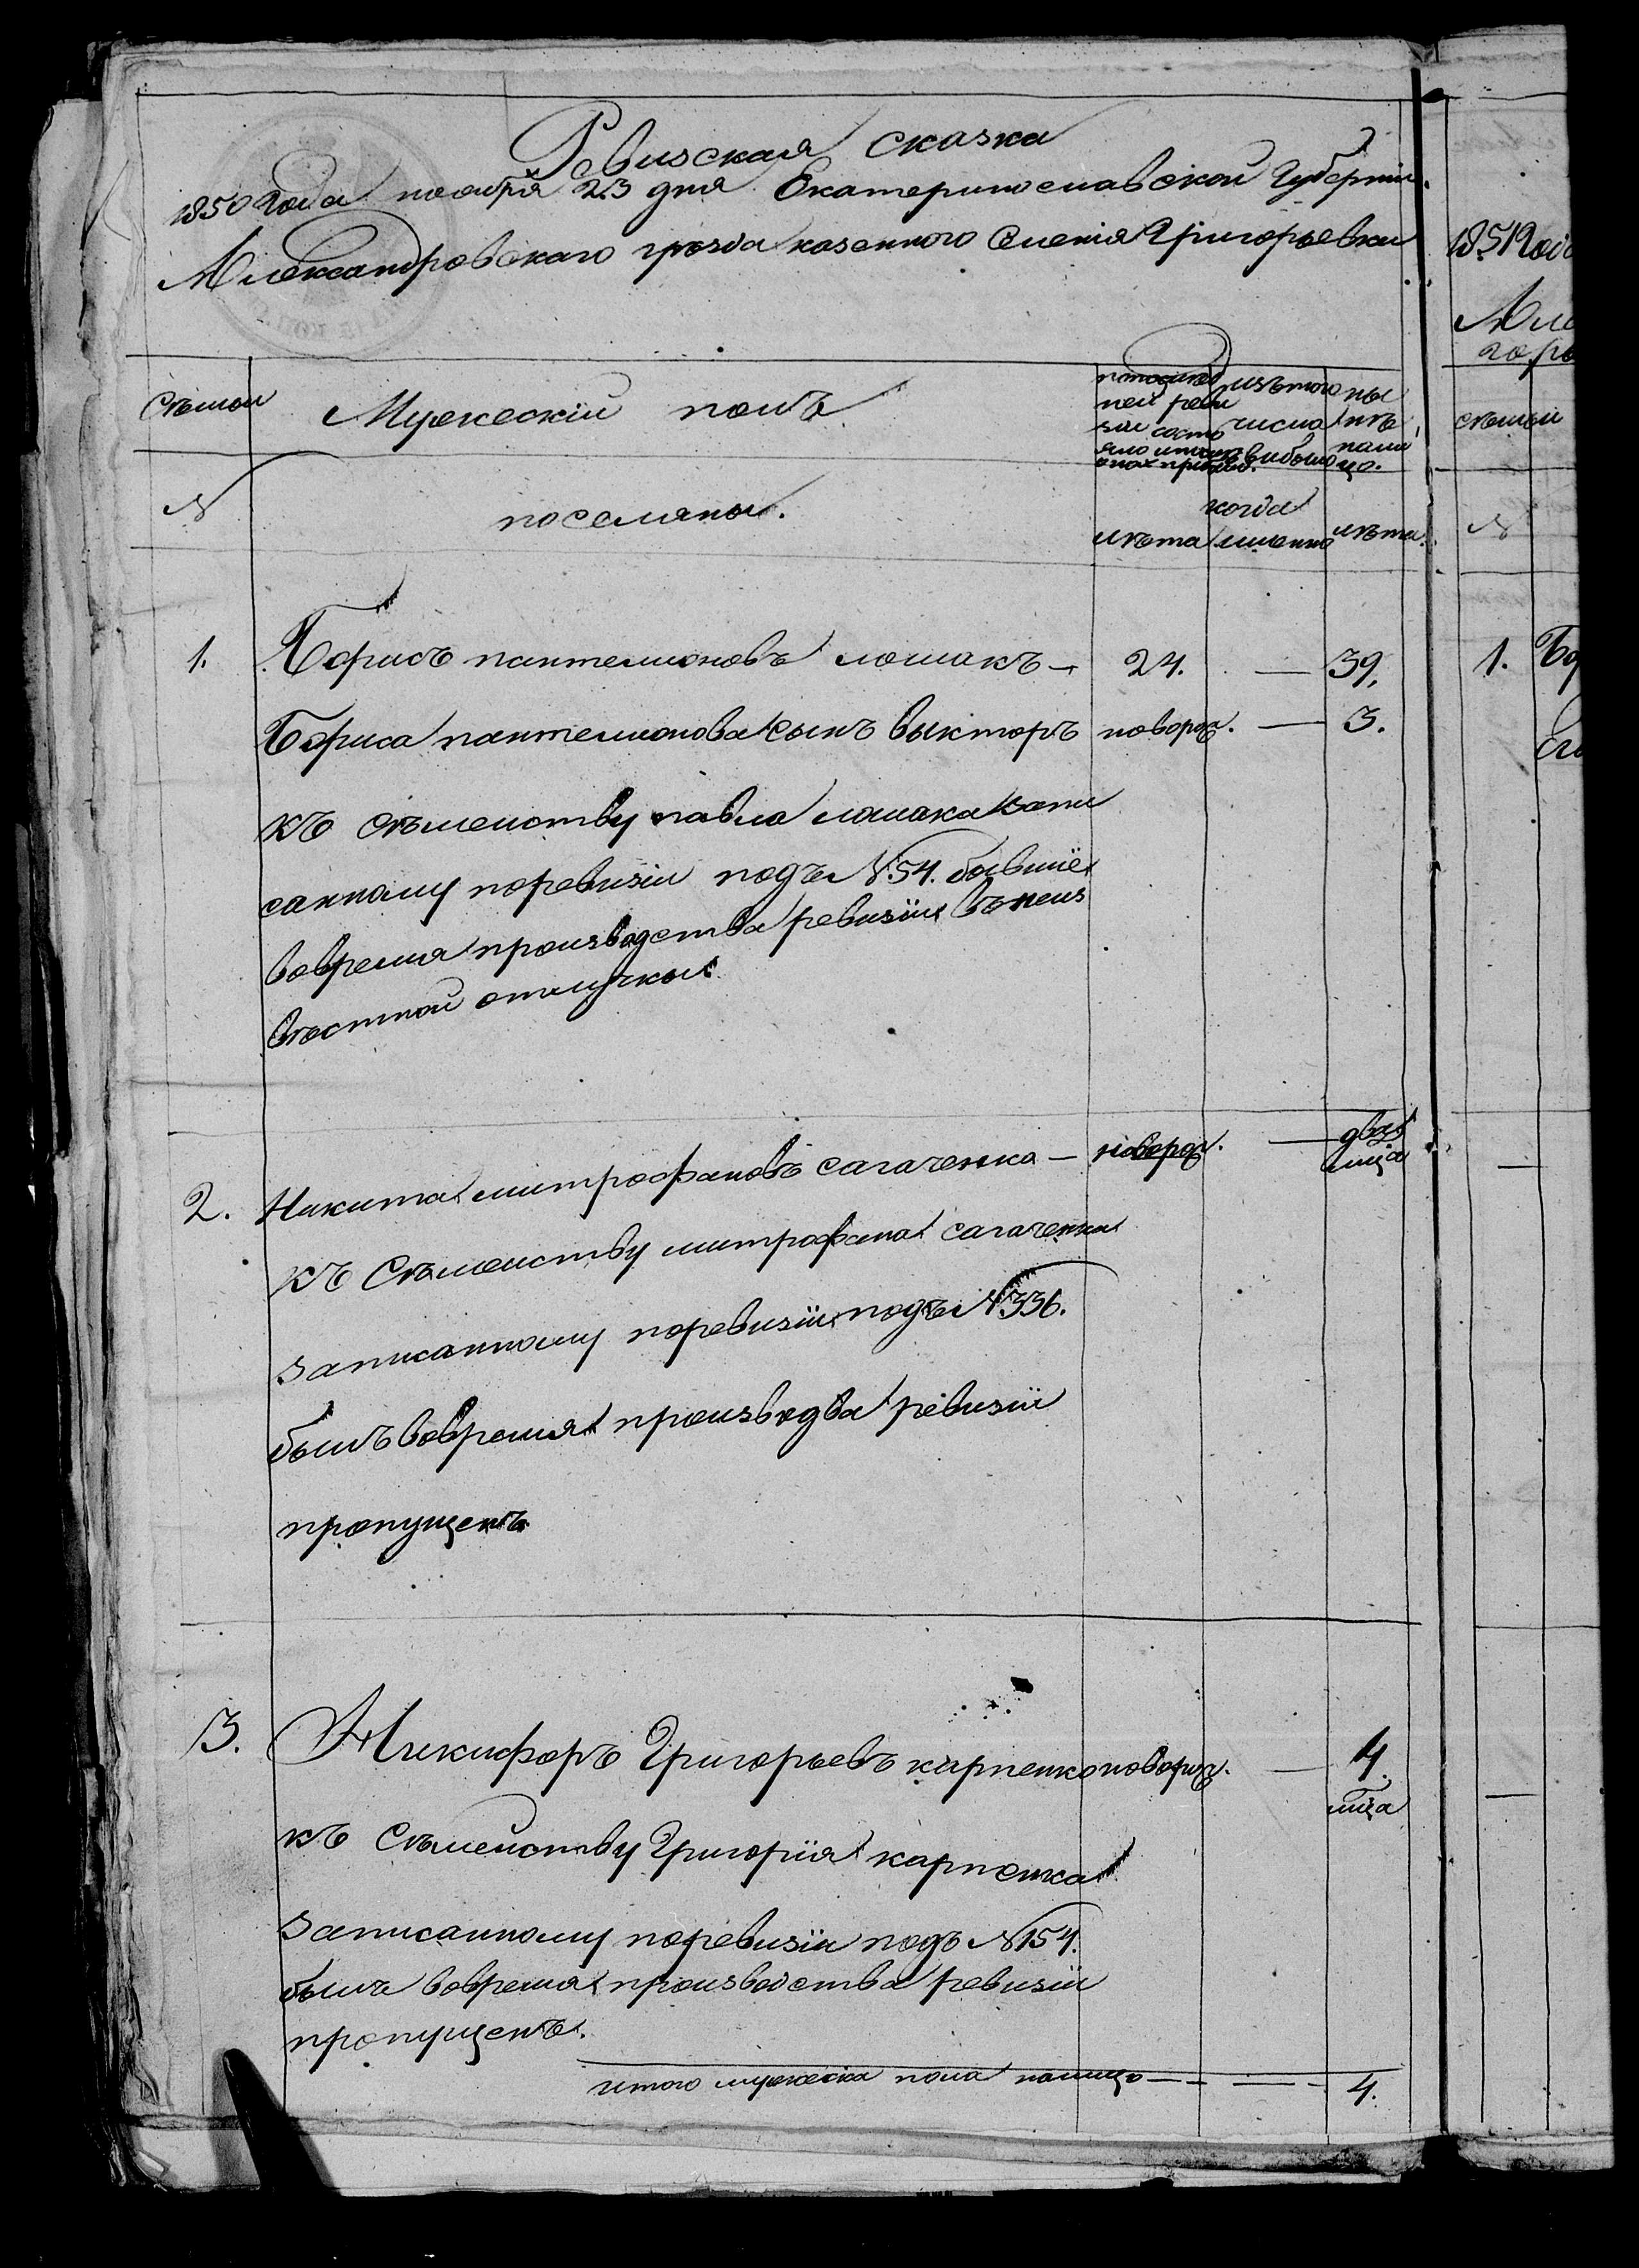 Ревизская сказка
1850 Года ноября 23 дня Екатеринославской Губернии.
Александровскаго уезда казенного Селенія Григорьевки
Сѣмьи
Мужескій полъ
изъ того числа выбыло
ныне налицо.
N
поселяны.
лѣта
когда именно
лѣта.
1. Борисъ пантелионовъ лошакъ — 24. — 39,
Бориса пантелионова Сынъ выкторъ новорож. — 3.
къ Сѣмейству павла лошака Запи
санному поревизіи подъ N. 54. бывшіе
вовремя производства ревизіи въ неиз
вѣстной отлучки
2. Никита митрофановъ сагаченко — новорож. — два м-ца
къ Сѣмейству митрофана сагаченка
записанному поревизіи подъ N 336.
былъ вовремя производва ревизіи
пропущенъ
3. Никифоръ Григорьевъ карпенко новорож. — 4 м-ца
къ Сѣмейству Григорія карпенка
Записанному поревизіи подъ N 154.
былъ вовремя производства ревизіи
пропущенъ.
итого мужеска пола налицо — — — 4.
1851 Года
сѣмьи
N
1.